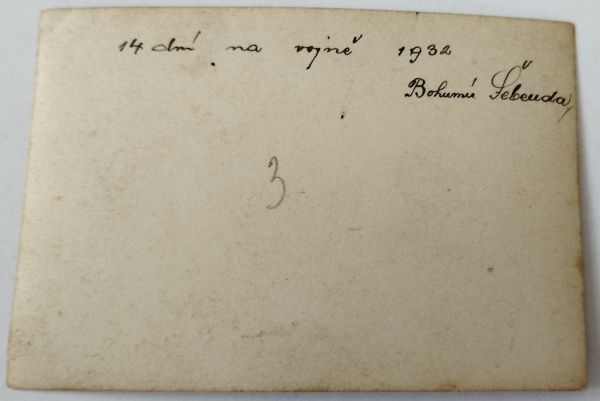 14 dní na vojně 1932
Bohumil Šebenda
3